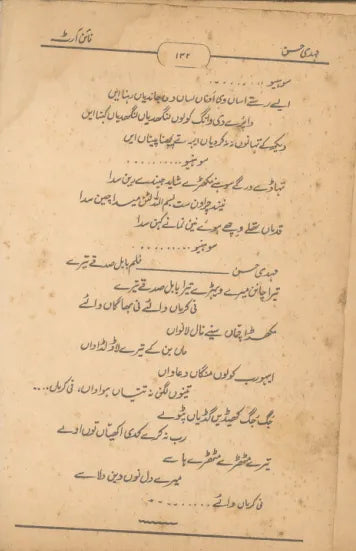 مہدی حسن ۱۳۲ فائن آرٹ
سوہنیو ..........
ایسے رستے اساں وی اونا اساں وی جاندیاں رہنا ایں
وانگ کولوں لنگھدیاں لنگھدیاں کہنا ایں
ویکھ کے تہانوں نہ کرویاں ایہ پینا ایں
سوہنیو ..........
تہاڈے ورگے سوہنے مکھڑے شاید جیندے رہن سدا
نیندر بسم اللہ چین سدا
قدماں تھلے وچھے ہوئے نیں نمانے سدا
سوہنیو ..........
مہدی حسن فلم بابل صدقے تیرے
تیرا چانن میرے ویہڑے تیرا بابل صدقے تیرے
نی کرماں والئے نی بھاگاں والئے
مکھڑا سینے نال لانواں
ماں بن کے تیرے لاڈ لڈاواں
ایہو رب کولوں منگاں دعاواں
تینوں لگن نہ تتیاں ہواواں، نی کرماں....
جگ جگ کھیڈیں گڈیاں پٹولے
رب نہ کرے کدی اکھیاں توں اوہلے
تیرے مٹھڑے مٹھڑے ہاسے
میرے دل نوں دین دلاسے
نی کرماں والئے ..........